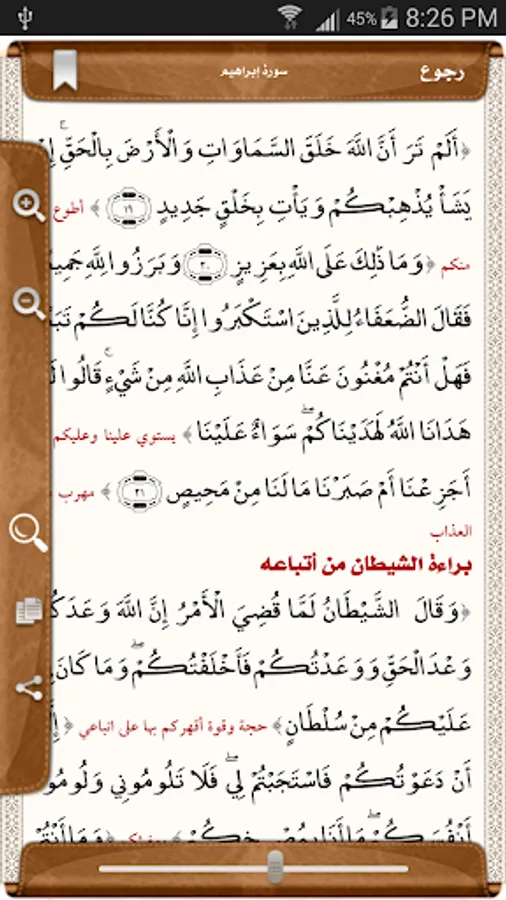 45% 8:26 PM
رجوع
سورة إبراهيم
﴿أَلَمْ تَرَ أَنَّ اللَّهَ خَلَقَ السَّمَاوَاتِ وَالْأَرْضَ بِالْحَقِّ
يَشَأْ يُذْهِبْكُمْ وَيَأْتِ بِخَلْقٍ جَدِيدٍ ١٩ ﴾ أطوع
منكم ﴿وَمَا ذَٰلِكَ عَلَى اللَّهِ بِعَزِيزٍ ٢٠ وَبَرَزُوا لِلَّهِ
فَقَالَ الضُّعَفَاءُ لِلَّذِينَ اسْتَكْبَرُوا إِنَّا كُنَّا لَكُمْ
فَهَلْ أَنْتُمْ مُغْنُونَ عَنَّا مِنْ عَذَابِ اللَّهِ مِنْ شَيْءٍ ۚ قَالُوا
هَدَانَا اللَّهُ لَهَدَيْنَاكُمْ ۖ سَوَاءٌ عَلَيْنَا﴾ يستوي علينا وعليكم
أَجَزِعْنَا أَمْ صَبَرْنَا مَا لَنَا مِنْ مَحِيصٍ ٢١ ﴾ مهرب
العذاب
براءة الشيطان من أتباعه
﴿وَقَالَ الشَّيْطَانُ لَمَّا قُضِيَ الْأَمْرُ إِنَّ اللَّهَ
وَعْدَ الْحَقِّ وَوَعَدْتُكُمْ فَأَخْلَفْتُكُمْ ۖ وَمَا كَانَ
عَلَيْكُمْ مِنْ سُلْطَانٍ﴾ حجة وقوة أقهركم بها على اتباعي ﴿
أَنْ دَعَوْتُكُمْ فَاسْتَجَبْتُمْ لِي ۖ فَلَا تَلُومُونِي
أَنْفُسَكُمْ ۖ مَا أَنَا بِمُصْرِخِكُمْ﴾